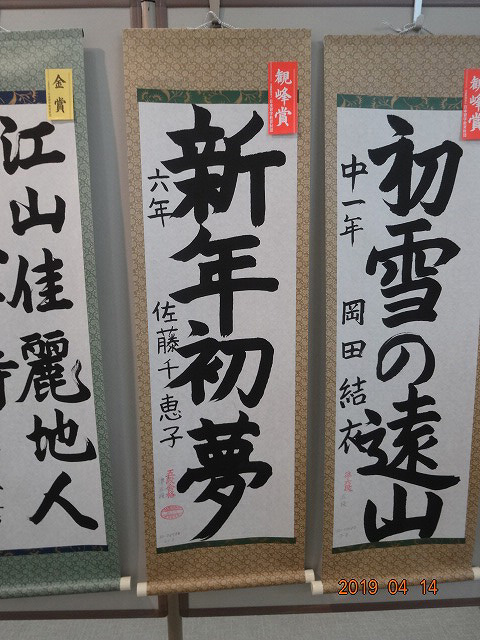 金賞
江山佳麗地人
観峰賞
新年初夢
六年
佐藤千恵子
観峰賞
初雪の遠山
中一年
岡田結衣
2019 04 14